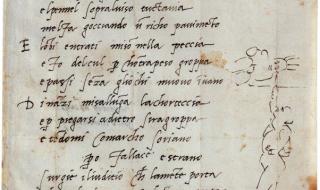 e lpennel sopraluiso tuctauia
mel fa gocciando u richo pauimeto
E lobi entrati miso nella peccia
e fo del cul p chotrapeso groppa
e passi seza gliochi muouo inuano
D inazi misalluga lachorteccia
e p piegarsi adietro siragroppa
e tedomi comarcho soriano
po fallace e strano
surgie iliuditio ch lamete porta